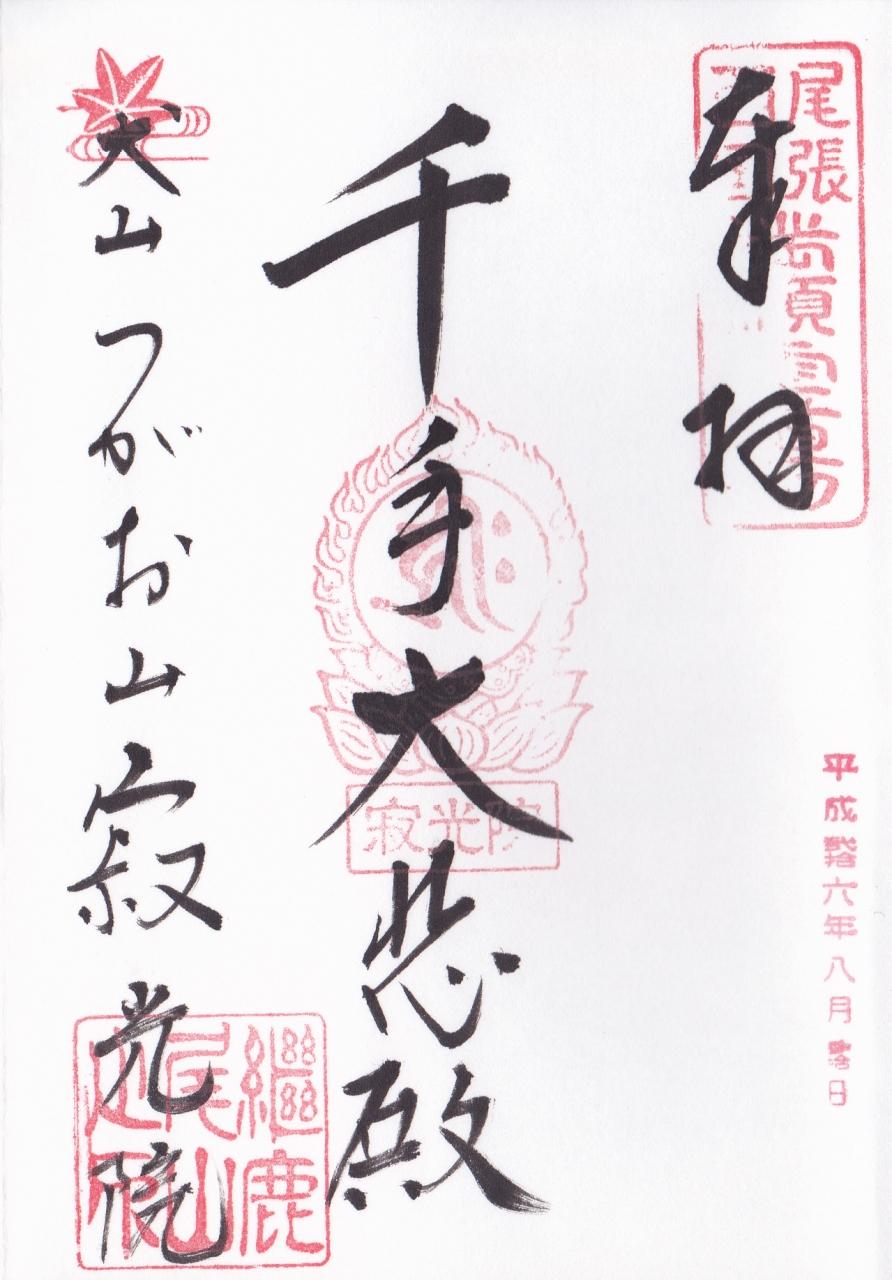 奉拝
尾張
平成
六年八月
日
千手大悲殿
寂光院
犬山つがお山寂光院
継鹿
尾山